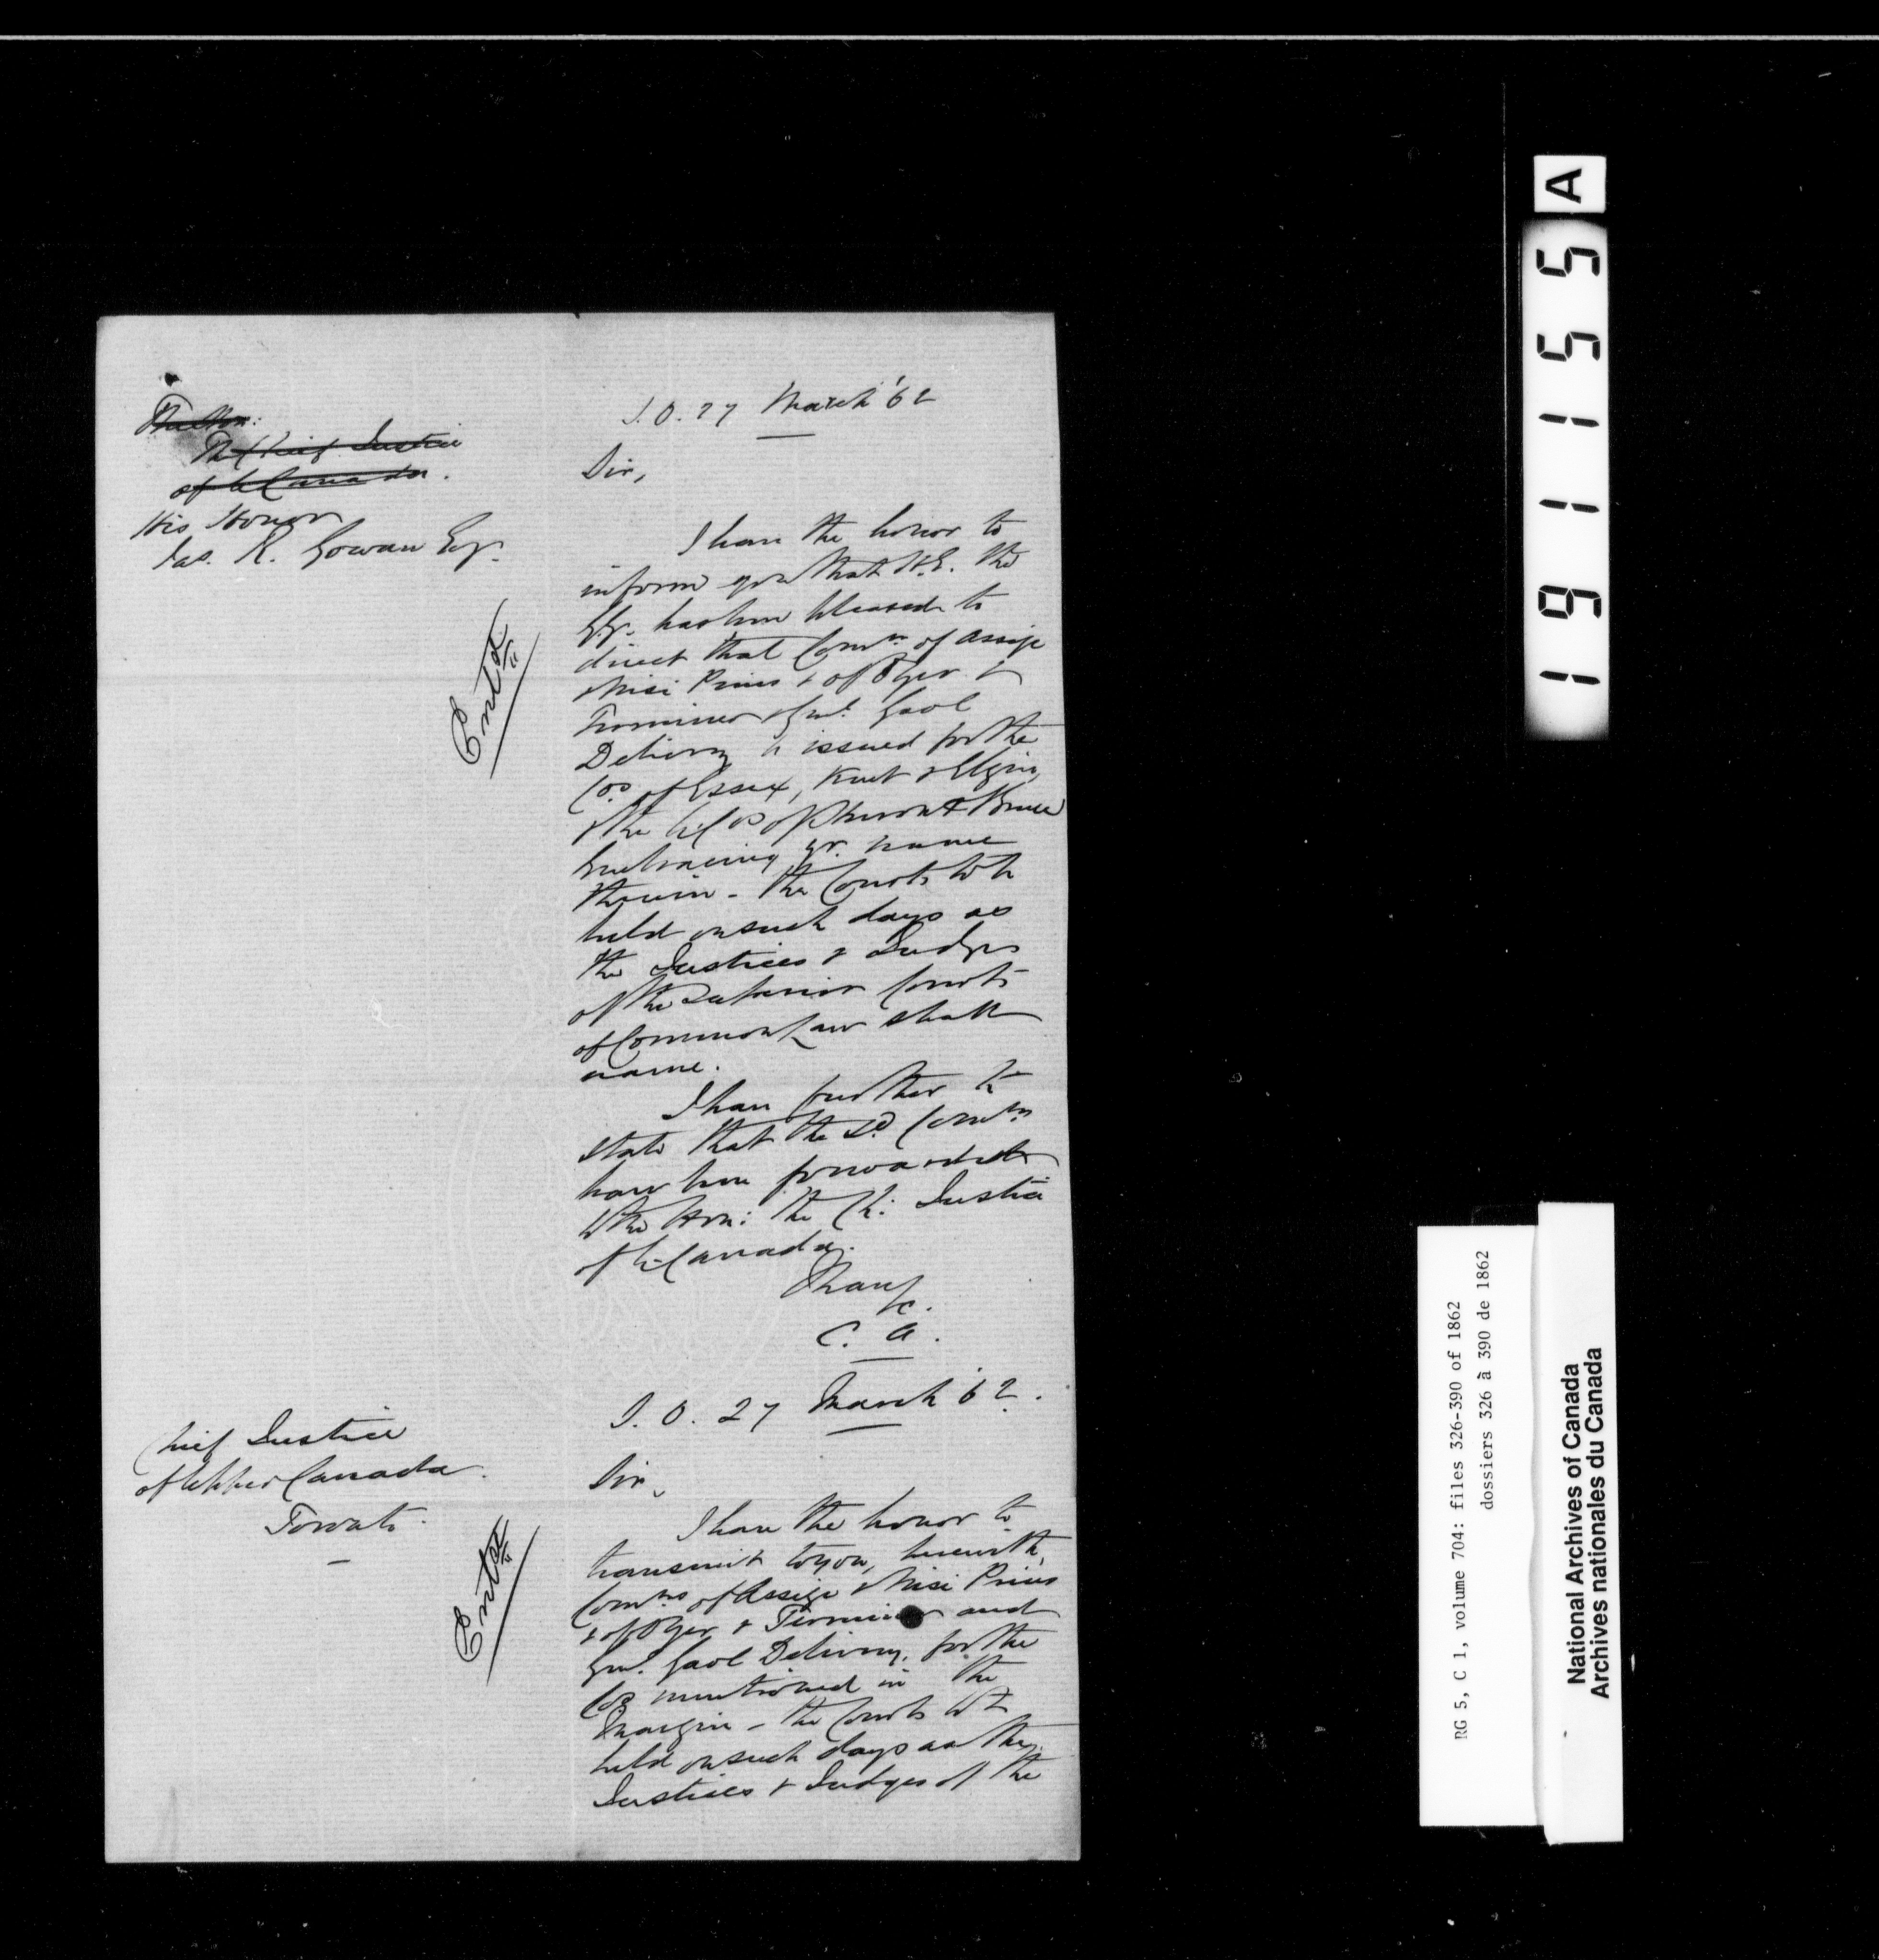 The Hon:
The Chief Justice
of U. Canada.
His Honor
Jas. R. Gowan Esq.
Entd
S.O. 27 March '62
Sir,
I have the honor to
inform you that H.E. the
G.G. has been pleased to
direct that Comns of Assize
& Nisi Prius & of Oyer &
Terminer & Genl. Gaol
Delivery be issued for the
Cos of Essex, Kent & Elgin,
& the U. Cos of Huron & Bruce
Embracing yr. name
therein - the Courts to be
held on such days as
the Justices & Judges
of the Superior Courts
of Common Law shall
name.
I have further to
state that the sd Comns
have been forwarded
to the Hon: the Ch: Justice
of U. Canada.
I have
&c.
C. A.
Chief Justice
of Upper Canada.
Toronto.
Entd
S.O. 27 March 62.
Sir,
I have the honor to
transmit to you, herewith,
Comns of Assize & Nisi Prius
& of Oyer & Terminer and
Genl. Gaol Delivery, for the
Cos mentioned in the
Margin - the Courts to be
held on such days as the
Justices & Judges of the
191155
A
RG 5, C 1, volume 704: files 326-390 of 1862
dossiers 326 à 390 de 1862
National Archives of Canada
Archives nationales du Canada